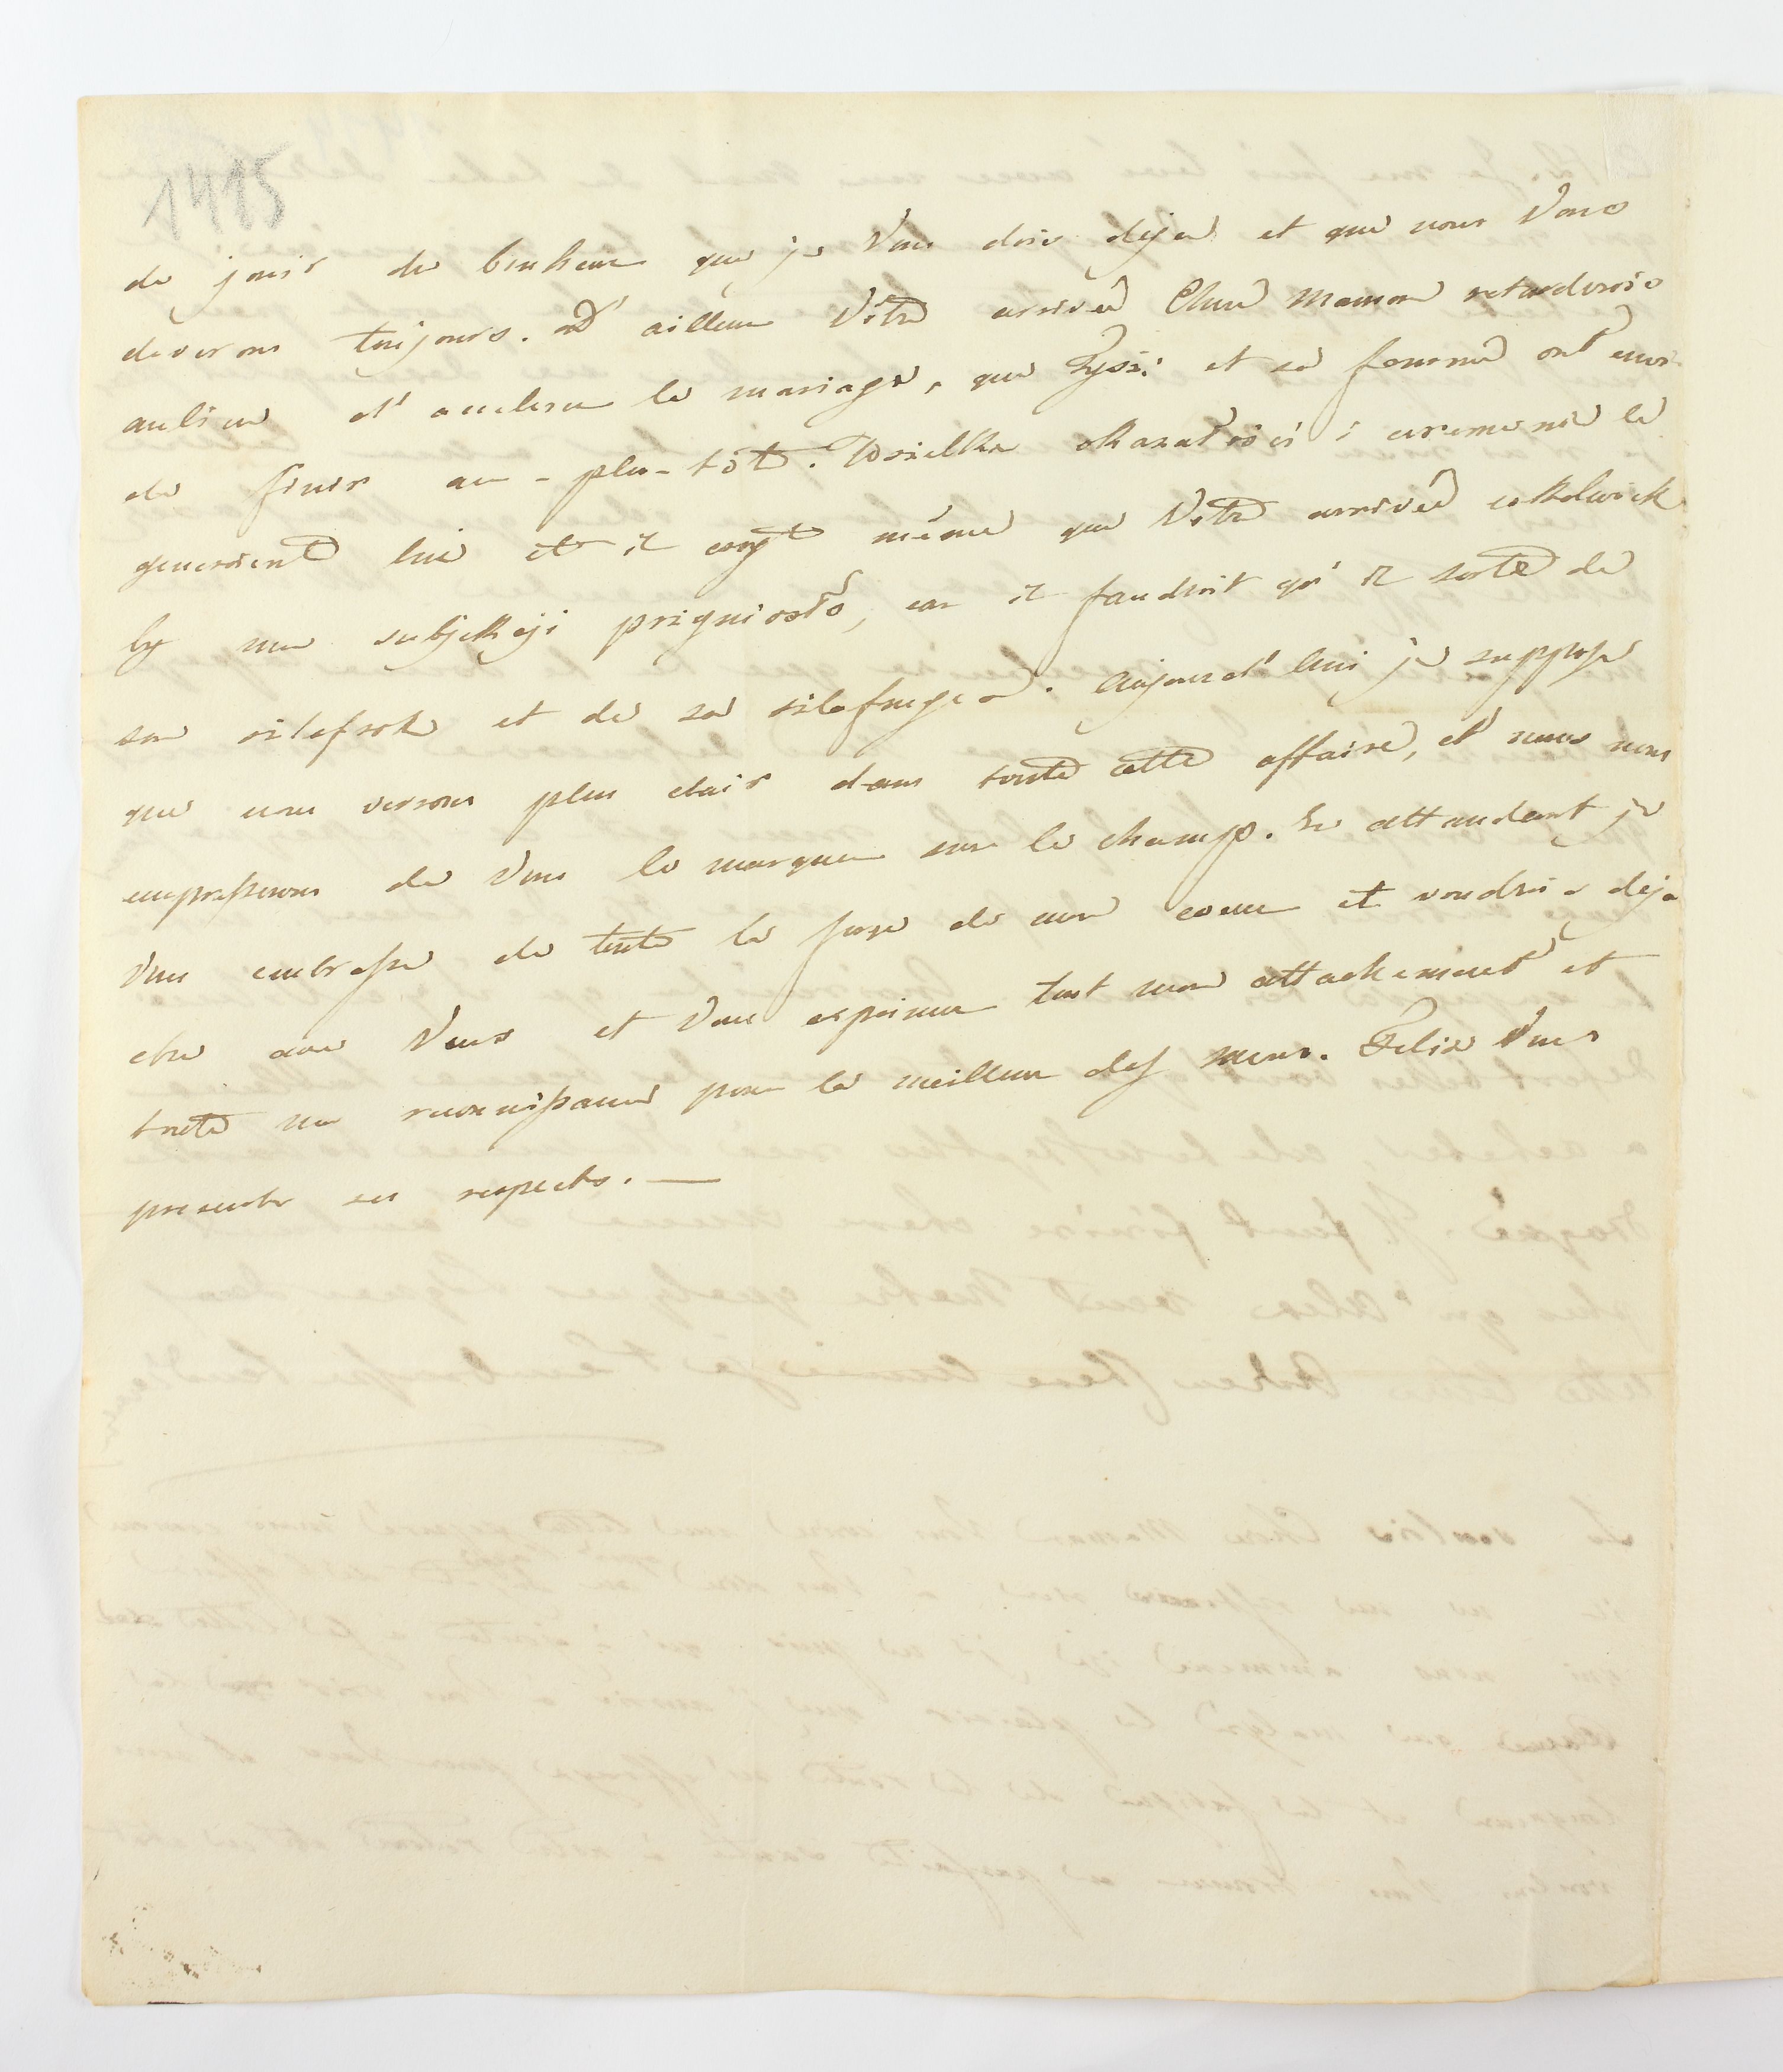 1415
de jouir du bonheur que je Vous dois deja et que nous Vous
deverons toujours. D'ailleurs Votre arrivée Chere Maman retarderoit
aulieu d'accelerer le mariage, que et sa femme ont envi
de finir au-plu-tôt. Wszelka okazałości i ceremonie le
generoient lui et il même que Votre arrivée cokolwiek
by mu subjekcji przyniosło, car il faudroit qu'il sorte de
son szlafrok et de sa . Aujourd'hui je suppose
que nous verrons plus clair dans toute cette affaire, et nous nous
empresserons de Vous le marquer sur le champ. En attandant je
Vous embrasse de toute la force de mon coeur et voudrois deja
etre avec Vous et Vous exprimer tout mon attachement et
toute ma reconnissance pour la meilleure des Meres. Felix Vous
presente ses respects. —